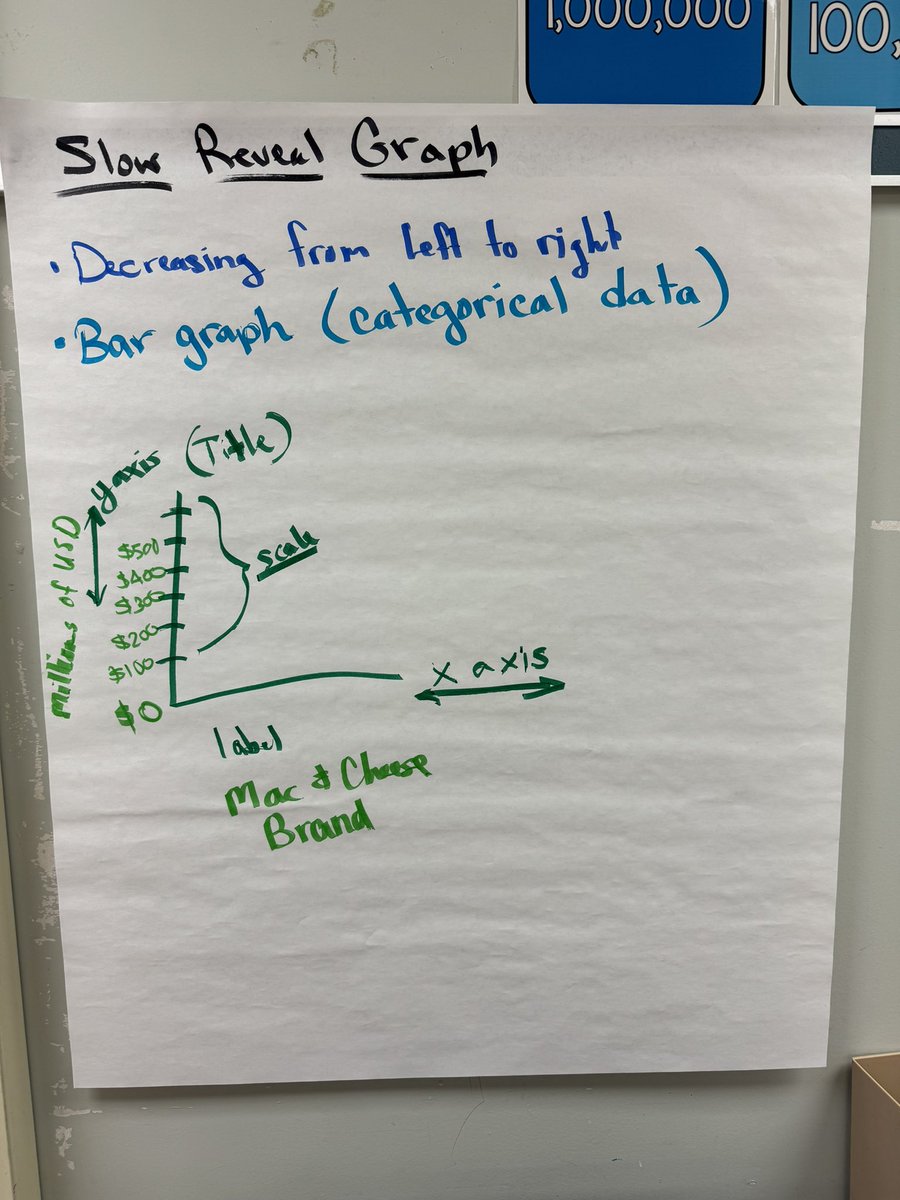 1,000,000
100,
Slow Reveal Graph
• Decreasing from left to right
• Bar graph (categorical data)
y axis (Title)
Millions of USD
$500
$400
$300
$200
$100
$0
scale
x axis
label
Mac & Cheese
Brand